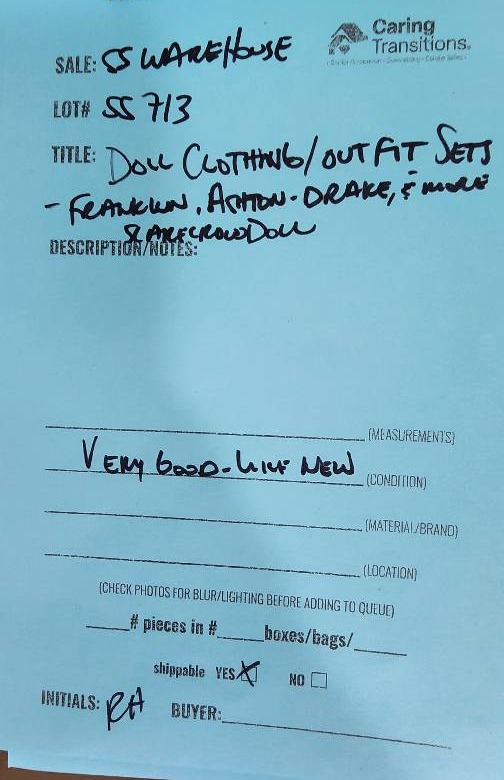 Caring
Transitions.
SALE: SS WAREHOUSE
LOT# SS 713
TITLE: DOLL CLOTHING/OUTFIT SETS
- FRANKLIN, ASHTON-DRAKE, & MORE
SCARECROW DOLL
DESCRIPTION/NOTES:
(MEASUREMENTS)
VERY GOOD-LIKE NEW (CONDITION)
(MATERIAL/BRAND)
(LOCATION)
(CHECK PHOTOS FOR BLUR/LIGHTING BEFORE ADDING TO QUEUE)
# pieces in # boxes/bags/
shippable YES NO
INITIALS: RH BUYER: